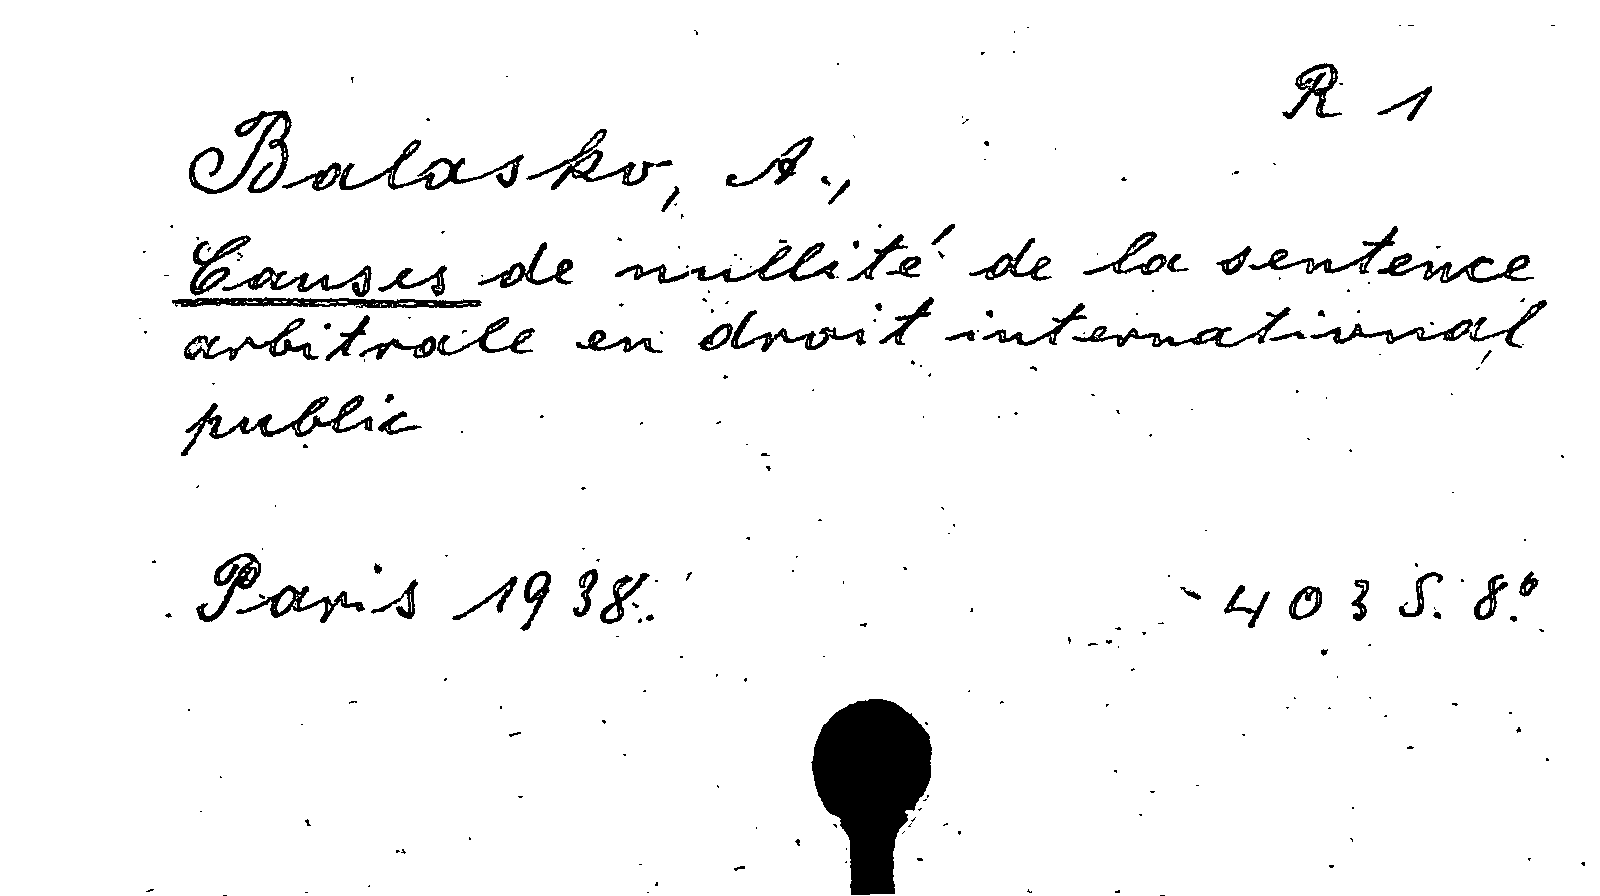 R 1
Balasko, A.,
Causes de nullité de la sentence
arbitrale en droit international
public
Paris 1938. 403 S. 8.°